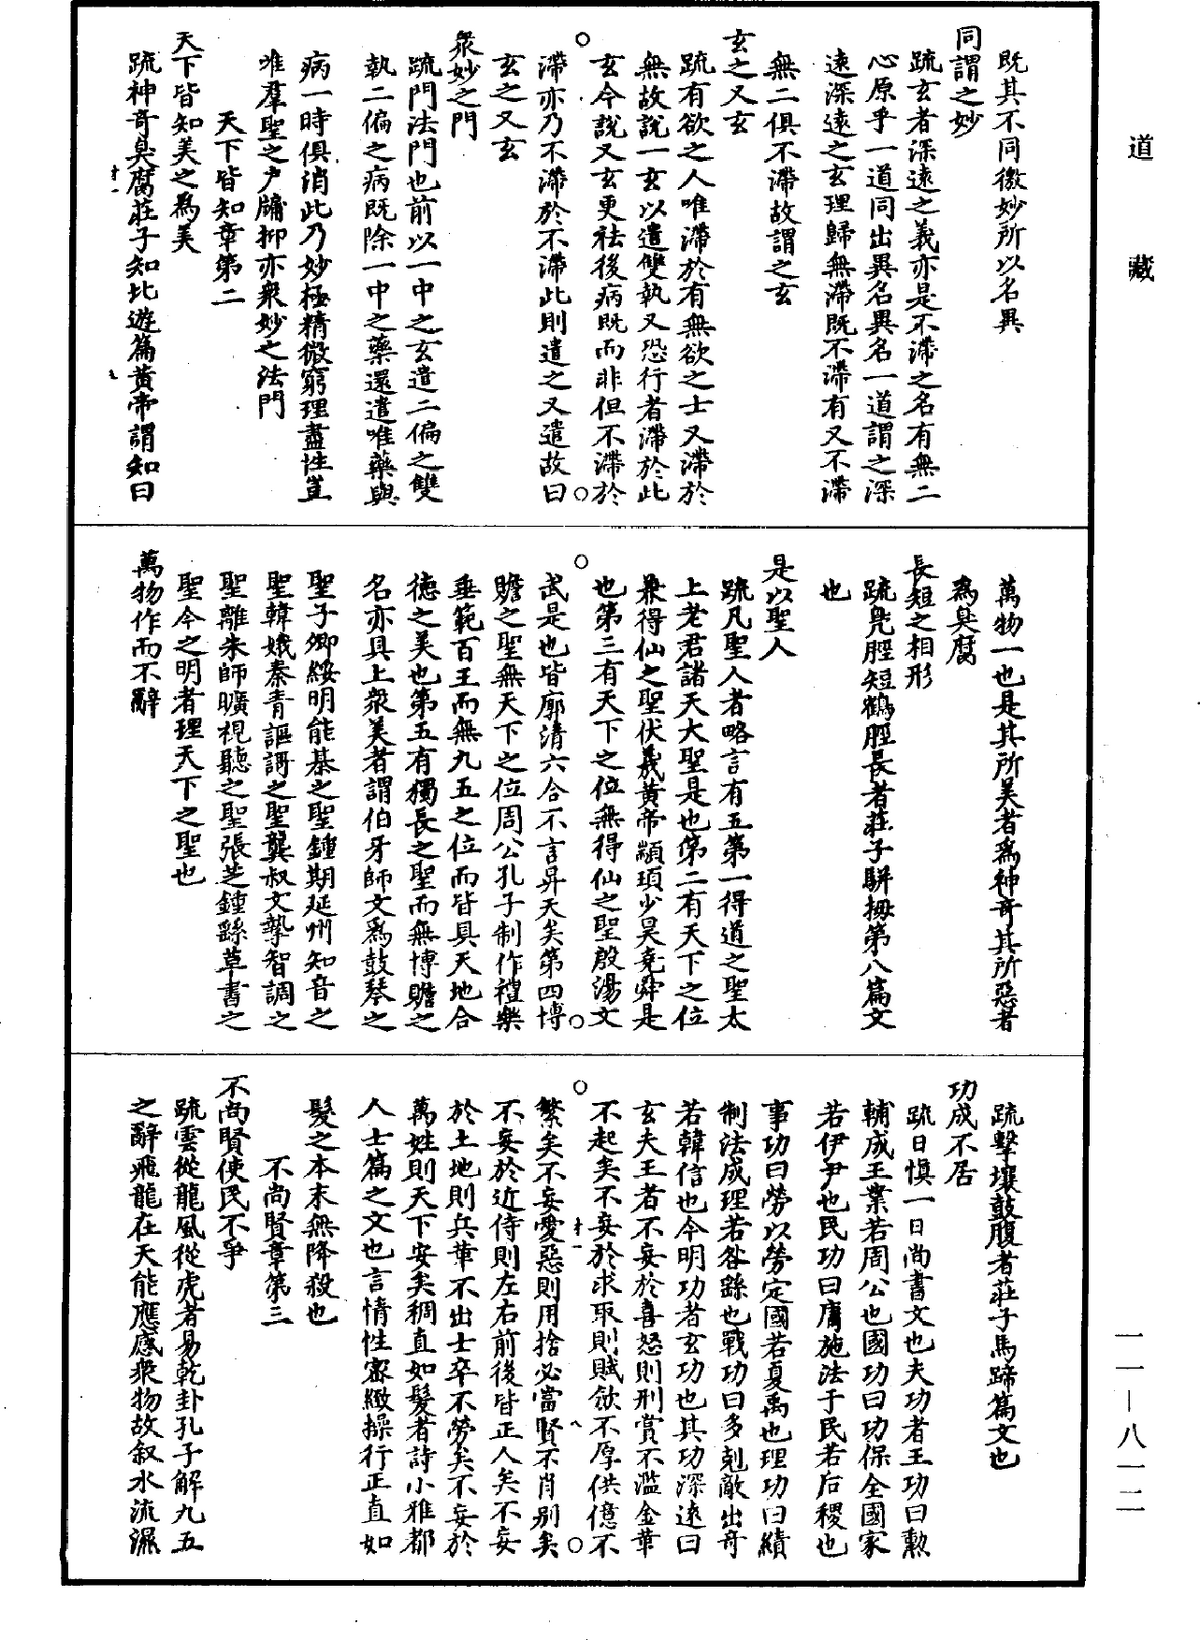 道藏
既其不同徼妙所以名異
同謂之妙
疏玄者深遠之義亦是不滯之名有無二
心原乎一道同出異名異名一道謂之深
遠深遠之玄理歸無滯既不滯有又不滯
無二俱不滯故謂之玄
玄之又玄
疏有欲之人唯滯於有無欲之士又滯於
無故說一玄以遣雙執又恐行者滯於此
玄今說又玄更祛後病既而非但不滯於
滯亦乃不滯於不滯此則遣之又遣故曰
玄之又玄
衆妙之門
疏門法門也前以一中之玄遣二偏之雙
執二偏之病既除一中之藥還遣唯藥與
病一時俱消此乃妙極精微窮理盡性豈
唯羣聖之户牖抑亦衆妙之法門
天下皆知章第二
天下皆知美之為美
疏神奇臭腐莊子知北遊篇黃帝謂知曰
萬物一也是其所美者為神奇其所惡者
為臭腐
長短之相形
疏凫脛短鶴脛長者莊子駢拇第八篇文
也
是以聖人
疏凡聖人者略言有五第一得道之聖太
上老君諸天大聖是也第二有天下之位
兼得仙之聖伏羲黃帝顓頊少昊堯舜是
也第三有天下之位無得仙之聖啟湯文
武是也皆廓清六合不言昇天矣第四博
贍之聖無天下之位周公孔子制作禮樂
垂範百王而無九五之位而皆具天地合
德之美也第五有獨長之聖而無博贍之
名亦具上衆美者謂伯牙師文為鼓琴之
聖子卿綏明能棊之聖鍾期延州知音之
聖韓娥秦青謳謌之聖龔叔文摯智調之
聖離朱師曠視聽之聖張芝鍾繇草書之
聖今之明者理天下之聖也
萬物作而不辭
疏擊壤鼓腹者莊子馬蹄篇文也
功成不居
疏日慎一日尚書文也夫功者王功曰勲
輔成王業若周公也國功曰功保全國家
若伊尹也民功曰庸施法于民若后稷也
事功曰勞以勞定國若夏禹也理功曰績
制法成理若咎繇也戰功曰多剋敵出奇
若韓信也今明功者玄功也其功深遠曰
玄夫王者不妄於喜怒則刑賞不濫金革
不起矣不妄於求取則賦斂不厚供億不
繁矣不妄愛惡則用捨必當賢不肖別矣
不妄於近侍則左右前後皆正人矣不妄
於土地則兵革不出士卒不勞矣不妄於
萬姓則天下安矣稠直如髮者詩小雅都
人士篇之文也言情性密緻操行正直如
髮之本末無降殺也
不尚賢章第三
不尚賢使民不爭
疏雲從龍風從虎者易乾卦孔子解九五
之辭飛龍在天能應感衆物故叙水流濕
一一—八一二